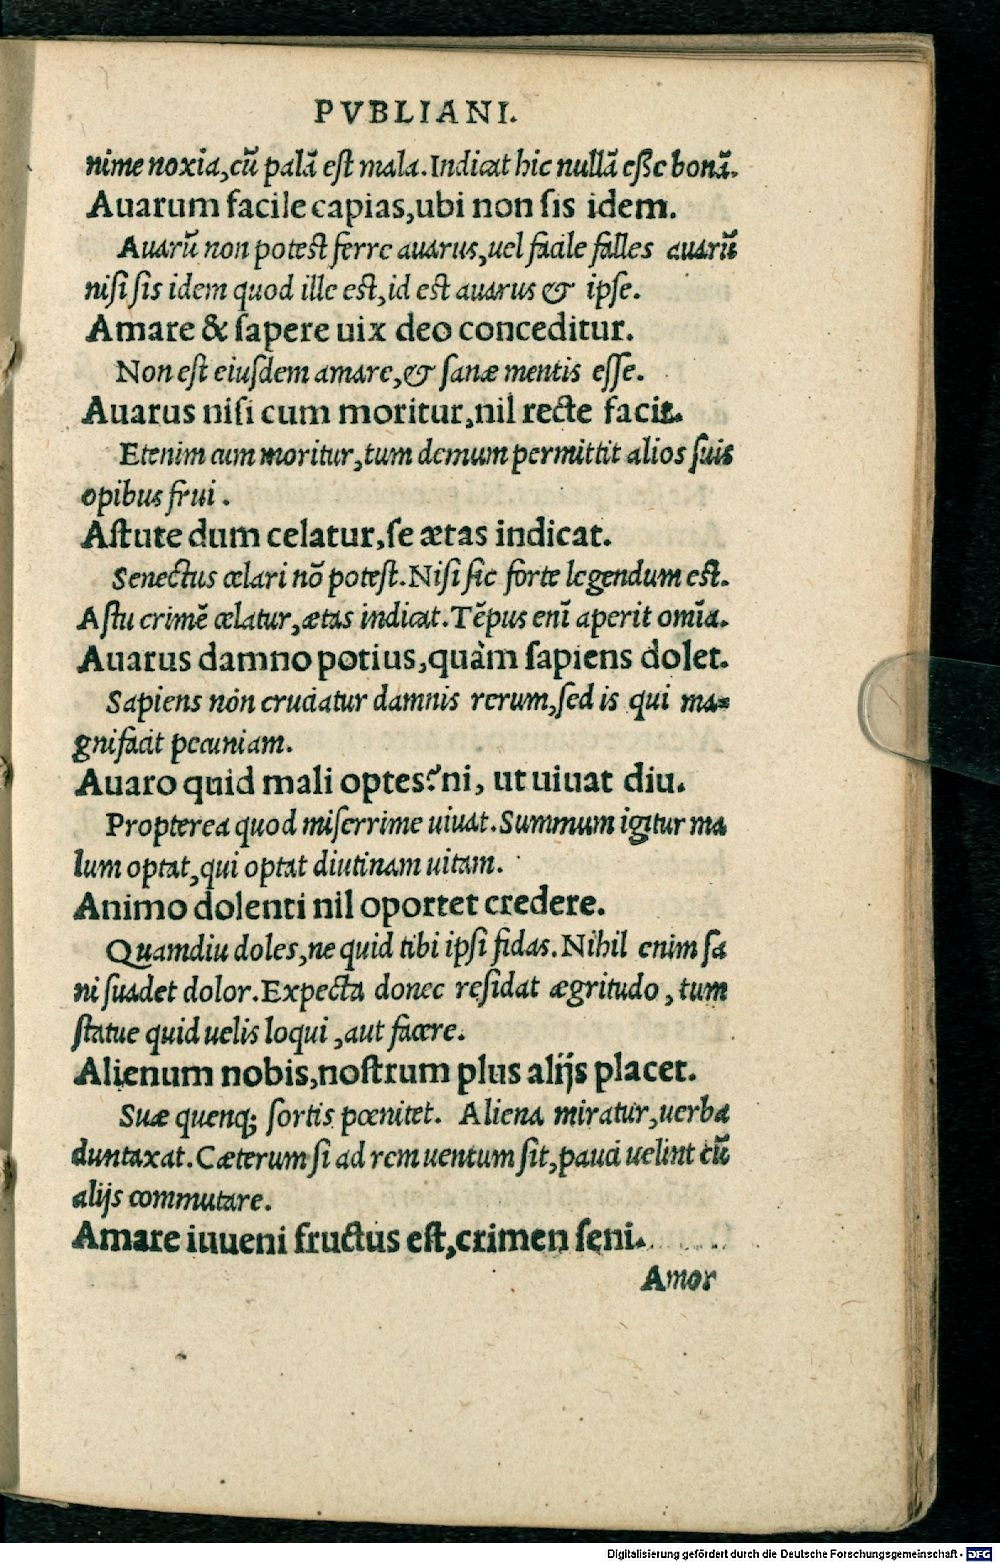 PVBLIANI.
nime noxia, cũ palã eſt mala. Indicat hic nullã eſſe bonã.
Auarum facile capias, ubi non ſis idem.
Auarũ non poteſt ferre auarus, uel facile falles auarũ
niſi ſis idem quod ille eſt, id eſt auarus & ipſe.
Amare & ſapere uix deo conceditur.
Non eſt eiuſdem amare, & ſanæ mentis eſſe.
Auarus niſi cum moritur, nil recte facit.
Etenim cum moritur, tum demum permittit alios ſuis
opibus frui.
Aſtute dum celatur, ſe ætas indicat.
Senectus celari nõ poteſt. Niſi ſic forte legendum eſt.
Aſtu crimẽ celatur, ætas indicat. Tẽpus enĩ aperit omĩa.
Auarus damno potius, quàm ſapiens dolet.
Sapiens non cruciatur damnis rerum, ſed is qui ma-
gnifacit pecuniam.
Auaro quid mali optes? ni, ut uiuat diu.
Propterea quod miſerrime uiuat. Summum igitur ma
lum optat, qui optat diutinam uitam.
Animo dolenti nil oportet credere.
Quamdiu doles, ne quid tibi ipſi fidas. Nihil enim ſa
ni ſuadet dolor. Expecta donec reſidat ægritudo, tum
ſtatue quid uelis loqui, aut facere.
Alienum nobis, noſtrum plus alijs placet.
Suæ quenq; ſortis pœnitet. Aliena miratur, uerba
duntaxat. Cæterum ſi ad rem uentum ſit, pauci uelint cũ
alijs commutare.
Amare iuueni fructus eſt, crimen ſeni.
Amor
Digitalisierung gefördert durch die Deutsche Forschungsgemeinschaft - DFG